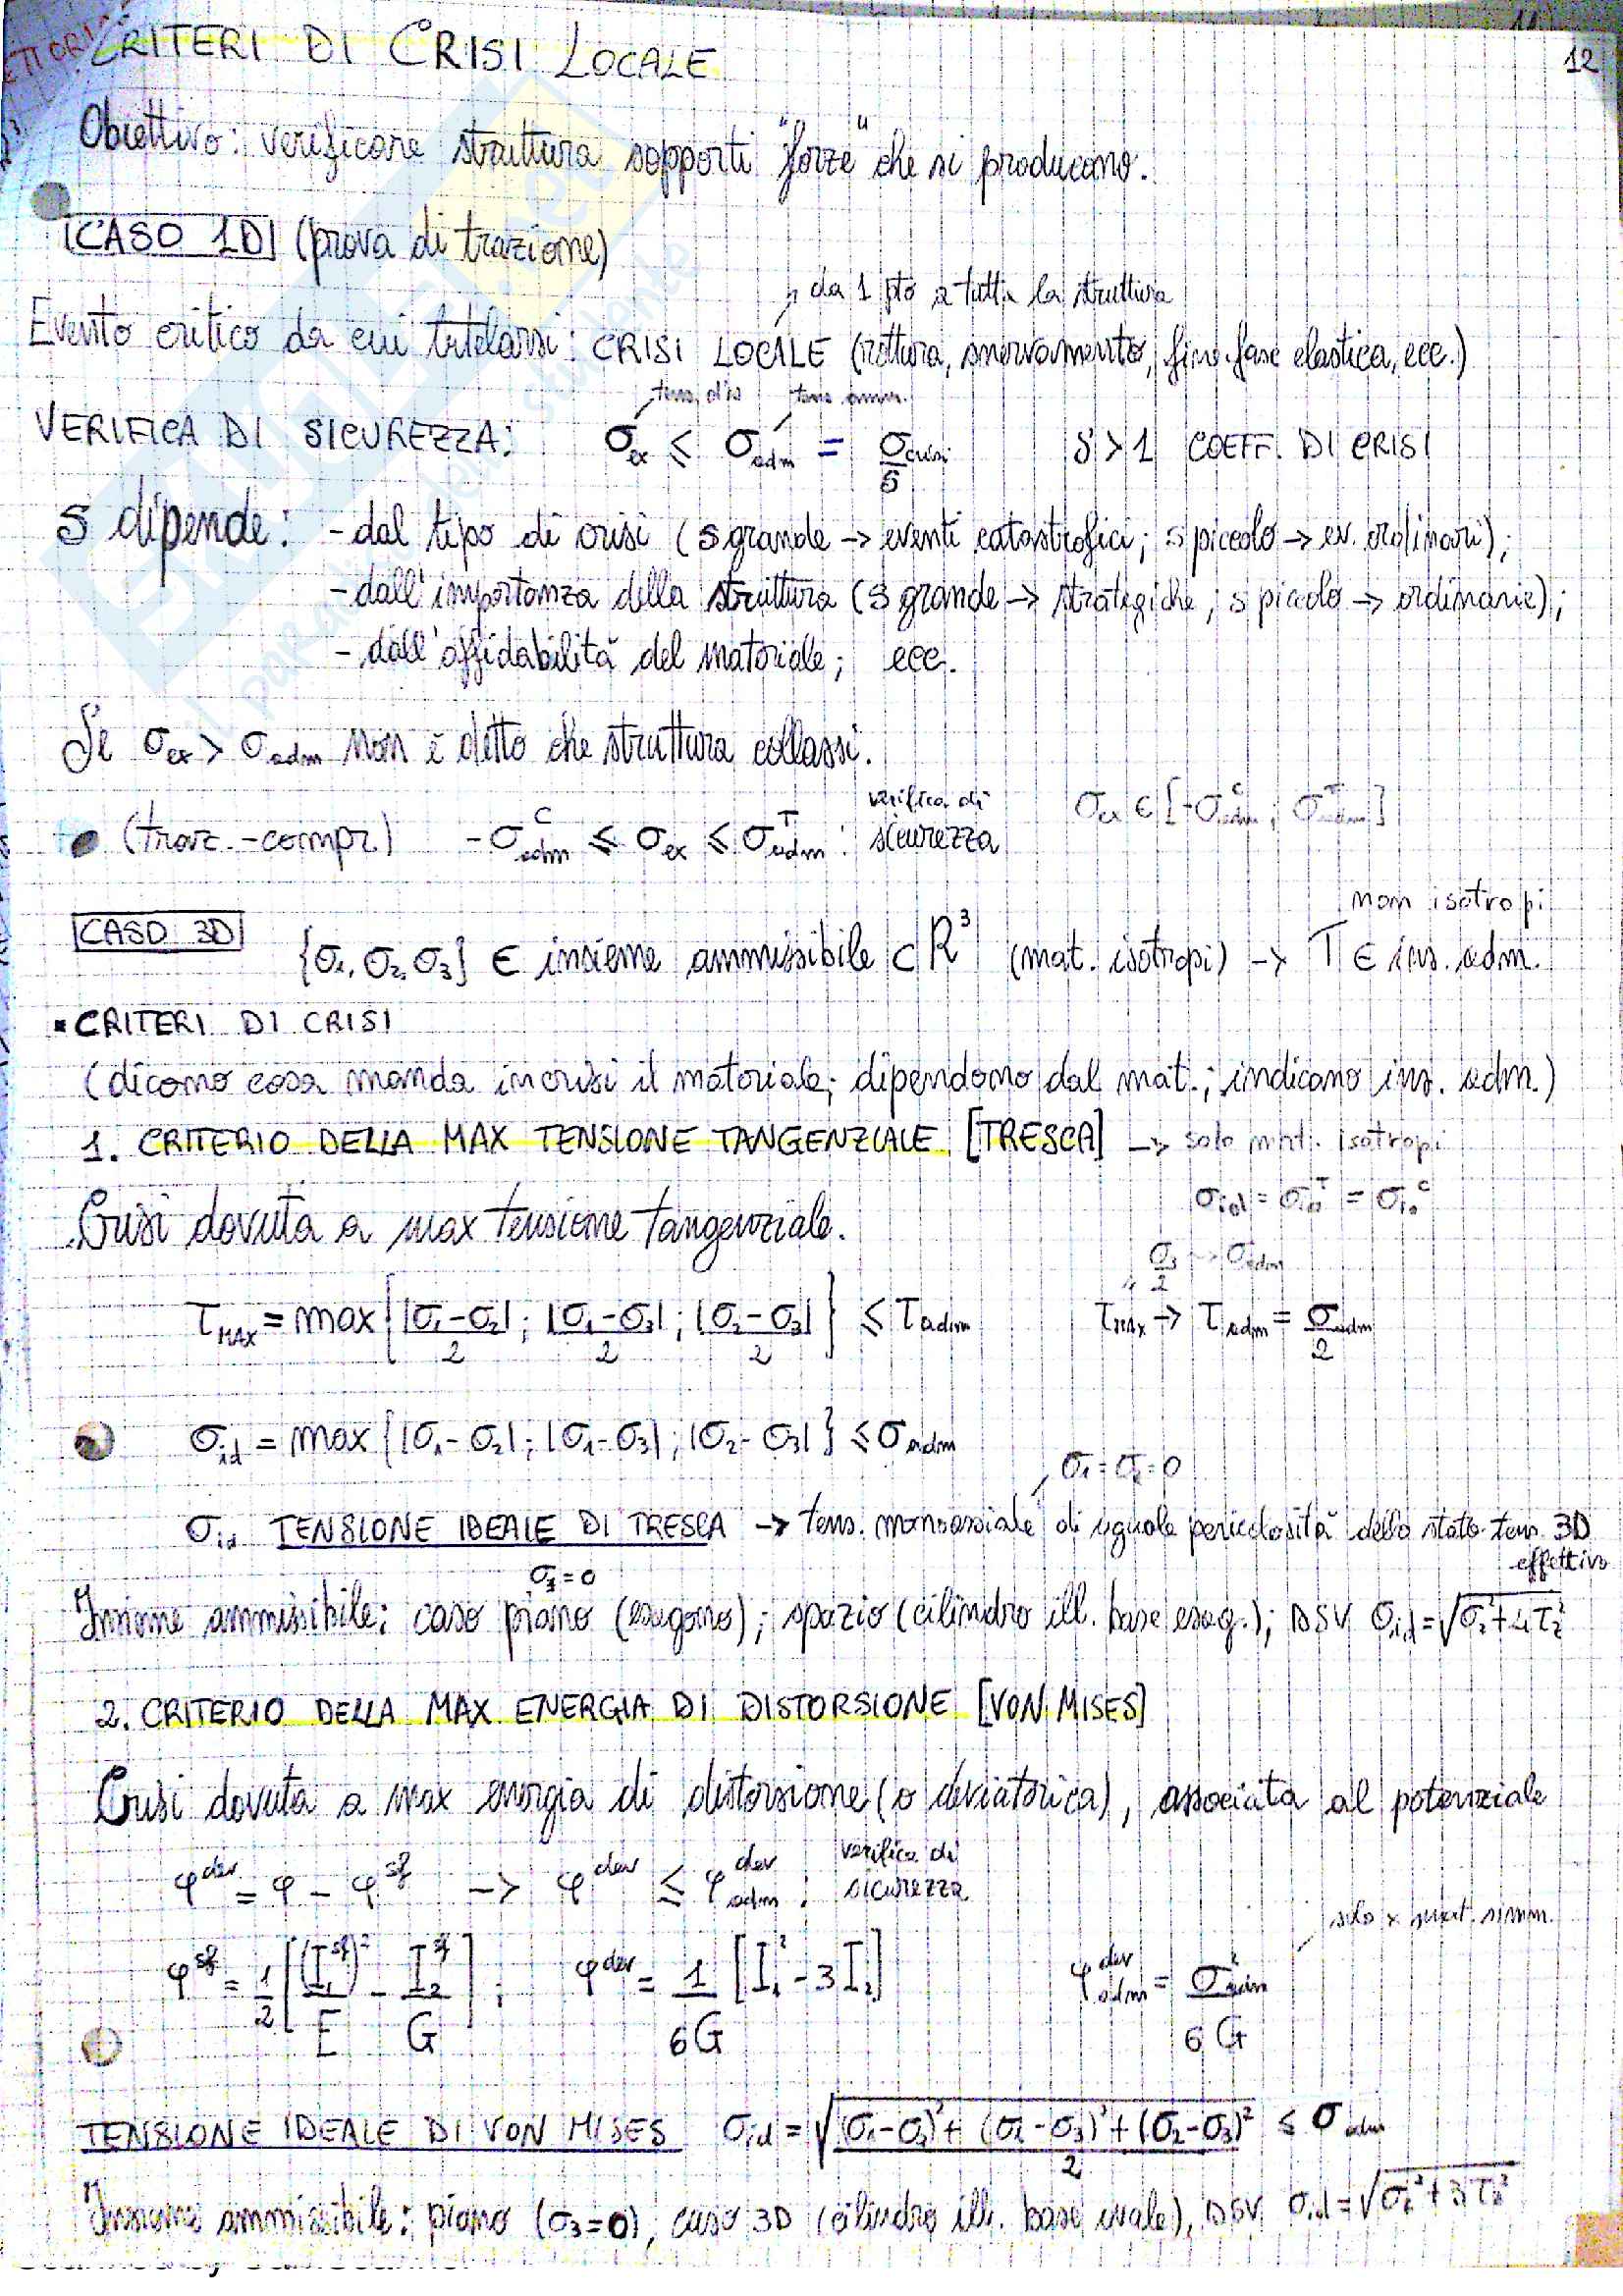 CRITERI DI CRISI LOCALE
12
Obiettivo: verificare struttura sopporti "forze" che si producono.
CASO 1D (prova di trazione)
da 1 pto a tutta la struttura
Evento critico da cui tutelarsi: CRISI LOCALE (rottura, snervamento, fine fase elastica, ecc.)
tens. amm.
VERIFICA DI SICUREZZA: σex ≤ σadm = σcrisi/s s>1 COEFF. DI CRISI
s dipende: - dal tipo di crisi (s grande → eventi catastrofici; s piccolo → ev. ordinari);
- dall'importanza della struttura (s grande → strategiche; s piccolo → ordinarie);
- dall'affidabilità del materiale; ecc.
Se σex > σadm non è detto che struttura collassi.
(traz.-compr.) -σ^C adm ≤ σex ≤ σ^T adm : verifica di sicurezza σex ∈ [-σ^C adm ; σ^T adm]
non isotropi
CASO 3D {σ1, σ2, σ3} ∈ insieme ammissibile ⊂ R³ (mat. isotropi) → T ∈ ins. adm.
CRITERI DI CRISI
(dicono cosa manda in crisi il materiale; dipendono dal mat.; indicano ins. adm.)
1. CRITERIO DELLA MAX TENSIONE TANGENZIALE [TRESCA] → solo mat. isotropi
Crisi dovuta a max tensione tangenziale.
σ3/2 → σadm
τMAX = max {|σ1-σ2|/2 ; |σ1-σ3|/2 ; |σ2-σ3|/2} ≤ τadm τmax → τadm = σadm/2
σid = max {|σ1-σ2| ; |σ1-σ3| ; |σ2-σ3|} ≤ σadm
σ1=σ2=0
σid TENSIONE IDEALE DI TRESCA → tens. monoassiale di uguale pericolosità dello stato tens. 3D effettivo
σ3=0
Insieme ammissibile: caso piano (esagono); spazio (cilindro ill. base esag.); DSV σid = √σz²+4τz²
2. CRITERIO DELLA MAX ENERGIA DI DISTORSIONE [VON MISES]
Crisi dovuta a max energia di distorsione (o deviatorica), associata al potenziale
φ^dev = φ - φ^sf → φ^dev ≤ φ^dev adm : verifica di sicurezza
solo x mat. simm.
φ^sf = 1/2 [(I1^sf)²/E - I2^sf/G] ; φ^dev = 1/6G [I1² - 3I2] φ^dev adm = σ²adm/6G
TENSIONE IDEALE DI VON MISES σid = √((σ1-σ2)²+(σ1-σ3)²+(σ2-σ3)²)/2 ≤ σadm
Insieme ammissibile: piano (σ3=0), caso 3D (cilindro ill. base ovale), DSV σid = √σz²+3τz²
Scanned by CamScanner